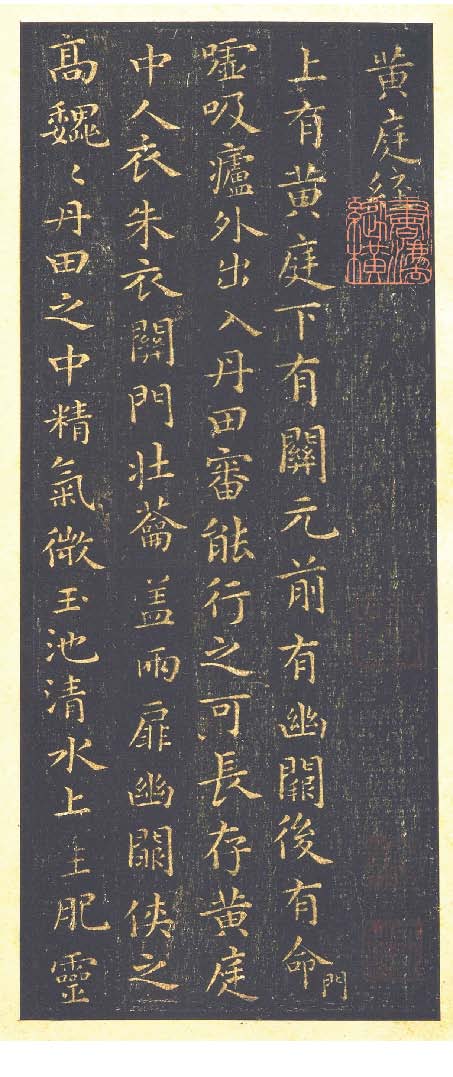 黄庭經
上有黄庭下有關元前有幽闕後有命門
嘘吸廬外出入丹田審能行之可長存黄庭
中人衣朱衣關門壯蘥盖兩扉幽闕俠之
高魏〻丹田之中精氣微玉池清水上生肥靈